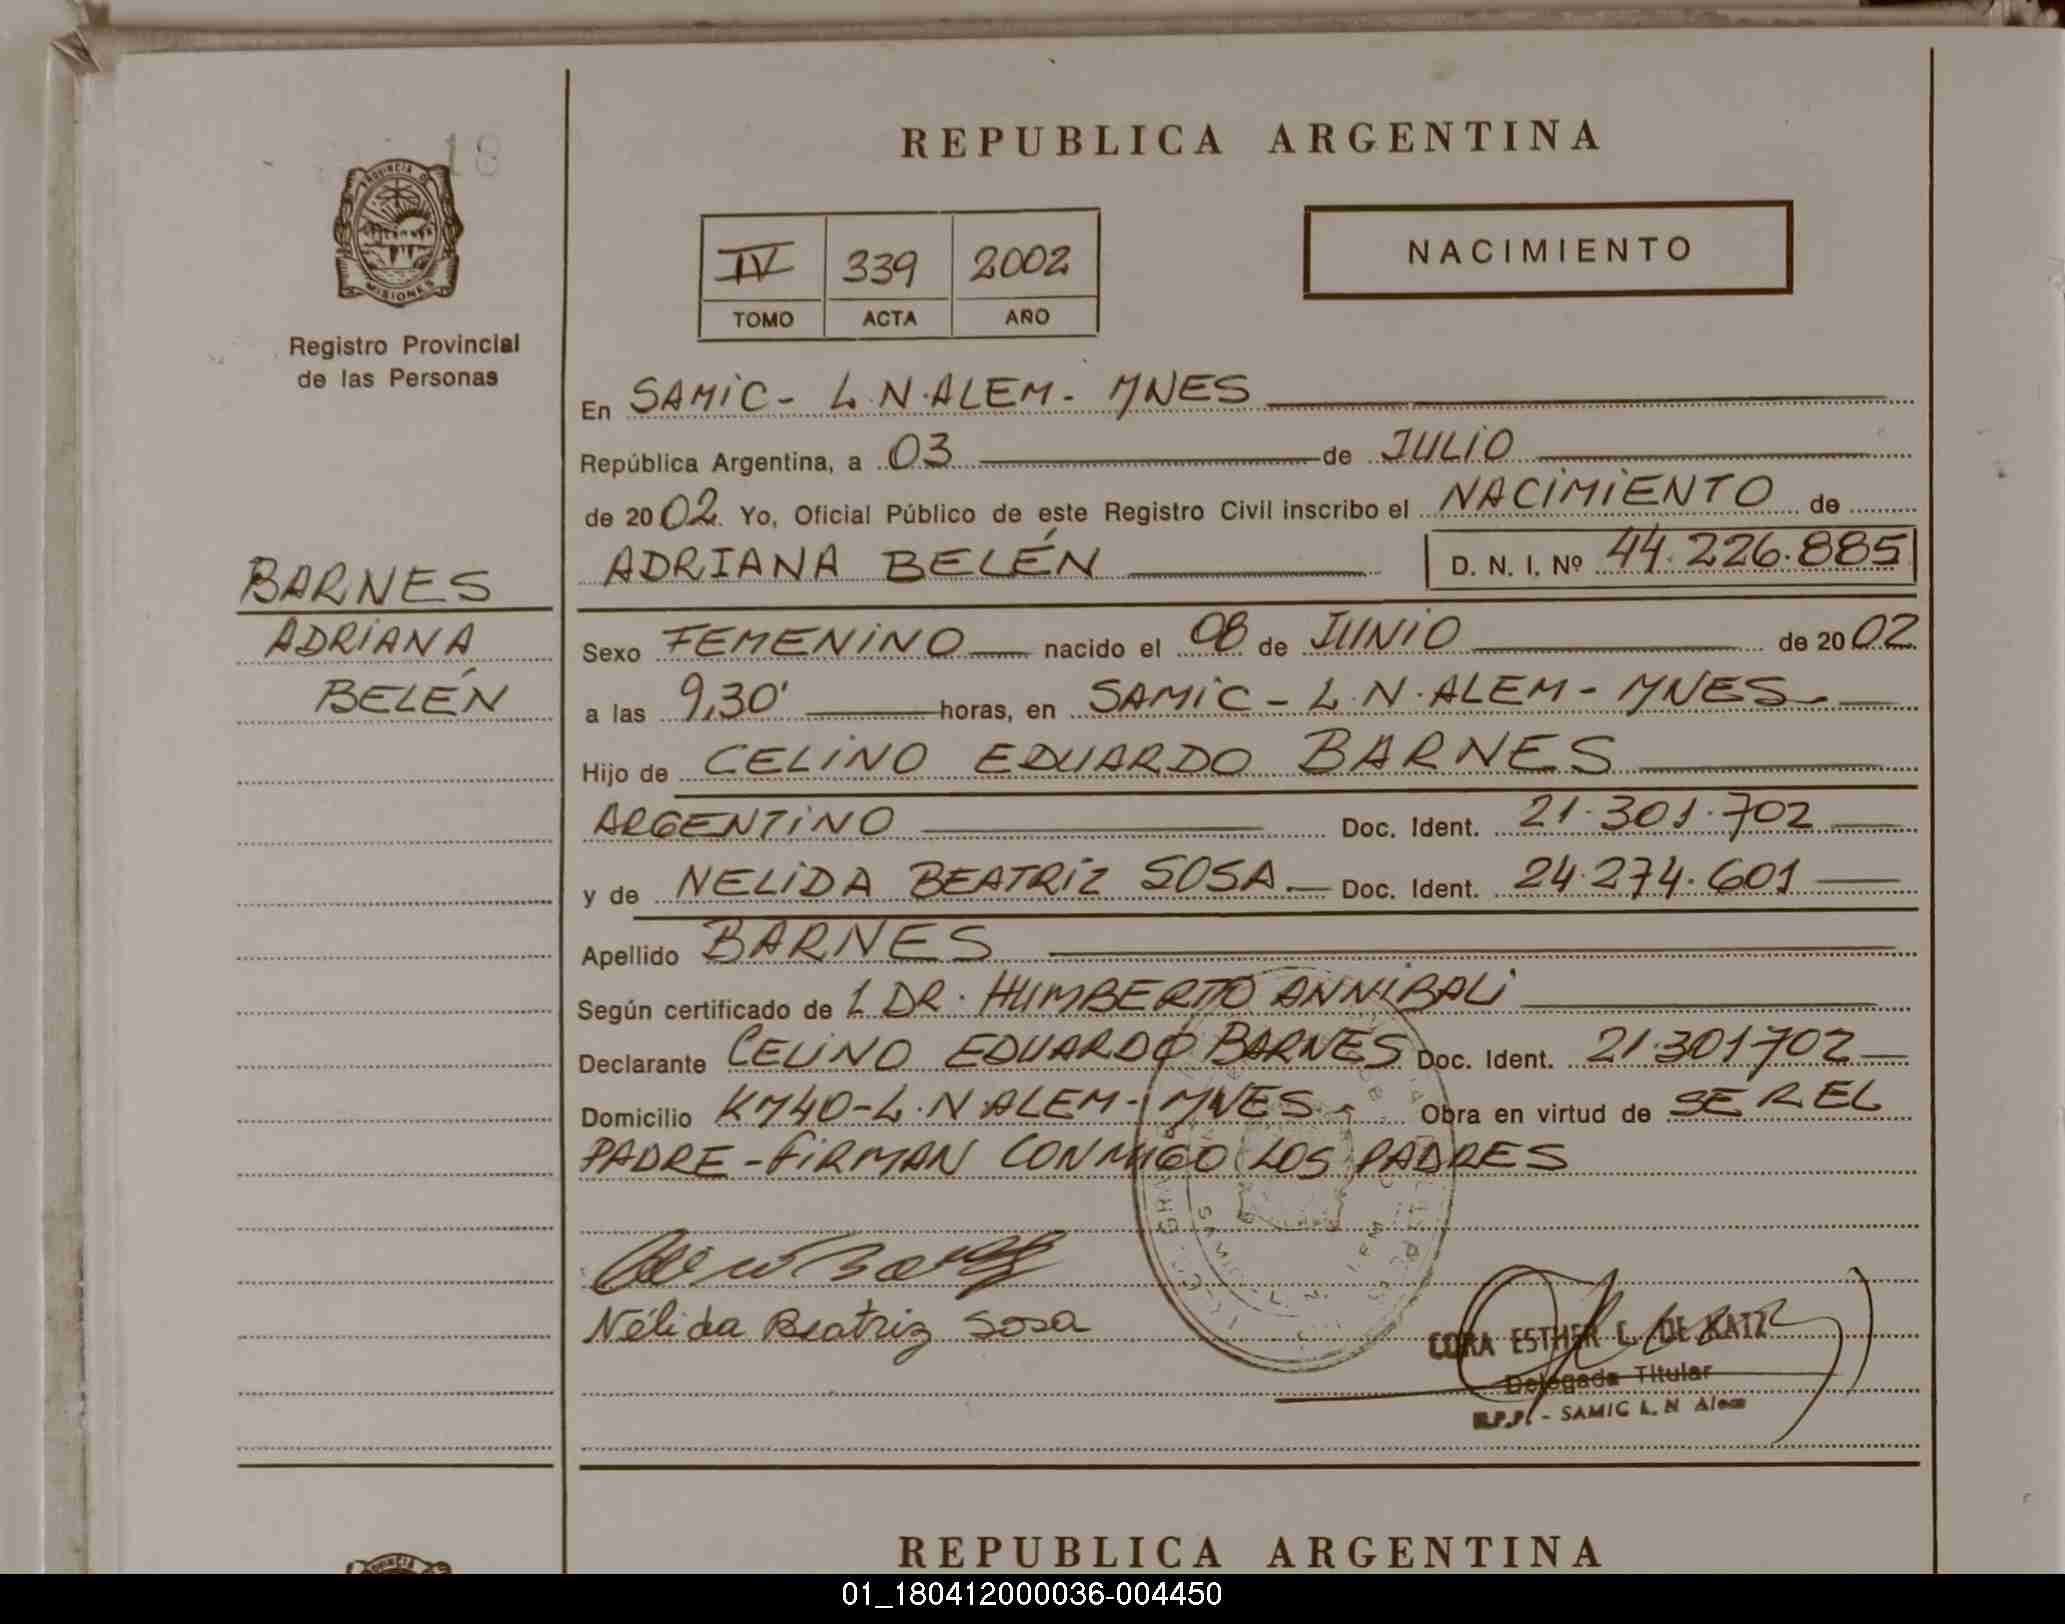 18
PROVINCIA D
MISIONES
Registro Provincial
de las Personas
BARNES
ADRIANA
BELÉN
REPUBLICA ARGENTINA
IV 339 2002
TOMO ACTA AÑO
NACIMIENTO
En SAMIC - L.N.ALEM - MNES
República Argentina, a 03 de JULIO
de 2002. Yo, Oficial Público de este Registro Civil inscribo el NACIMIENTO de
ADRIANA BELÉN D. N. I. Nº 44.226.885
Sexo FEMENINO nacido el 08 de JUNIO de 2002
a las 9,30' horas, en SAMIC - L.N.ALEM - MNES
Hijo de CELINO EDUARDO BARNES
ARGENTINO Doc. Ident. 21.301.702
y de NELIDA BEATRIZ SOSA Doc. Ident. 24.274.601
Apellido BARNES
Según certificado de L DR. HUMBERTO ANNIBALI
Declarante CELINO EDUARDO BARNES Doc. Ident. 21.301702
Domicilio KM40-L.N.ALEM-MNES- Obra en virtud de SER EL
PADRE - FIRMAN CONMIGO LOS PADRES
Nélida Beatriz Sosa
CORA ESTHER C. DE KATZ
Delegada Titular
R.P.P. - SAMIC L. N Alem
REPUBLICA ARGENTINA
01_180412000036-004450